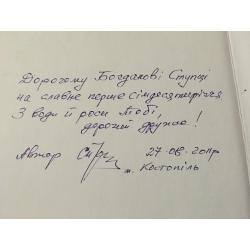 Дорогому Богданові Ступці
на славне перше сімдесятиріччя
З води й роси Тобі,
дорогий друже!
Автор
27-08-2011р
м. Костопіль